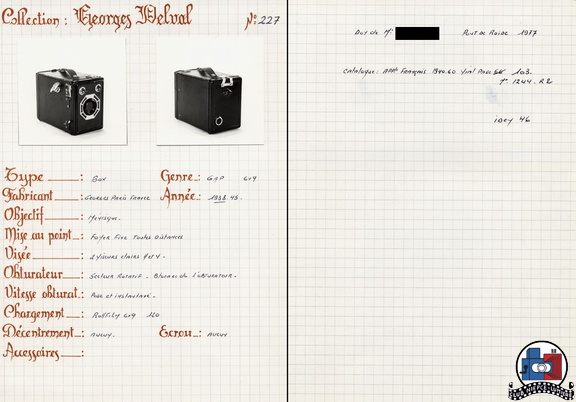 Collection : Georges Delval N°: 227
Type : Box Genre : GAP 6x9
Fabricant : Georges Paris France Année : 1938.45.
Objectif : Ménisque.
Mise au point : Foyer Fixe Toutes Distances
Visée : 2 Viseurs clairs
Obturateur : Secteur Rotatif - Blocage de l'obturateur.
Vitesse obturat : Pose et instantané.
Chargement : Rollfilm 6x9 120
Décentrement : aucun. Ecrou : aucun
Accessoires :
1977
Catalogue : APPs Français 1940.60. 103.
n° 1244. R2
idey 46